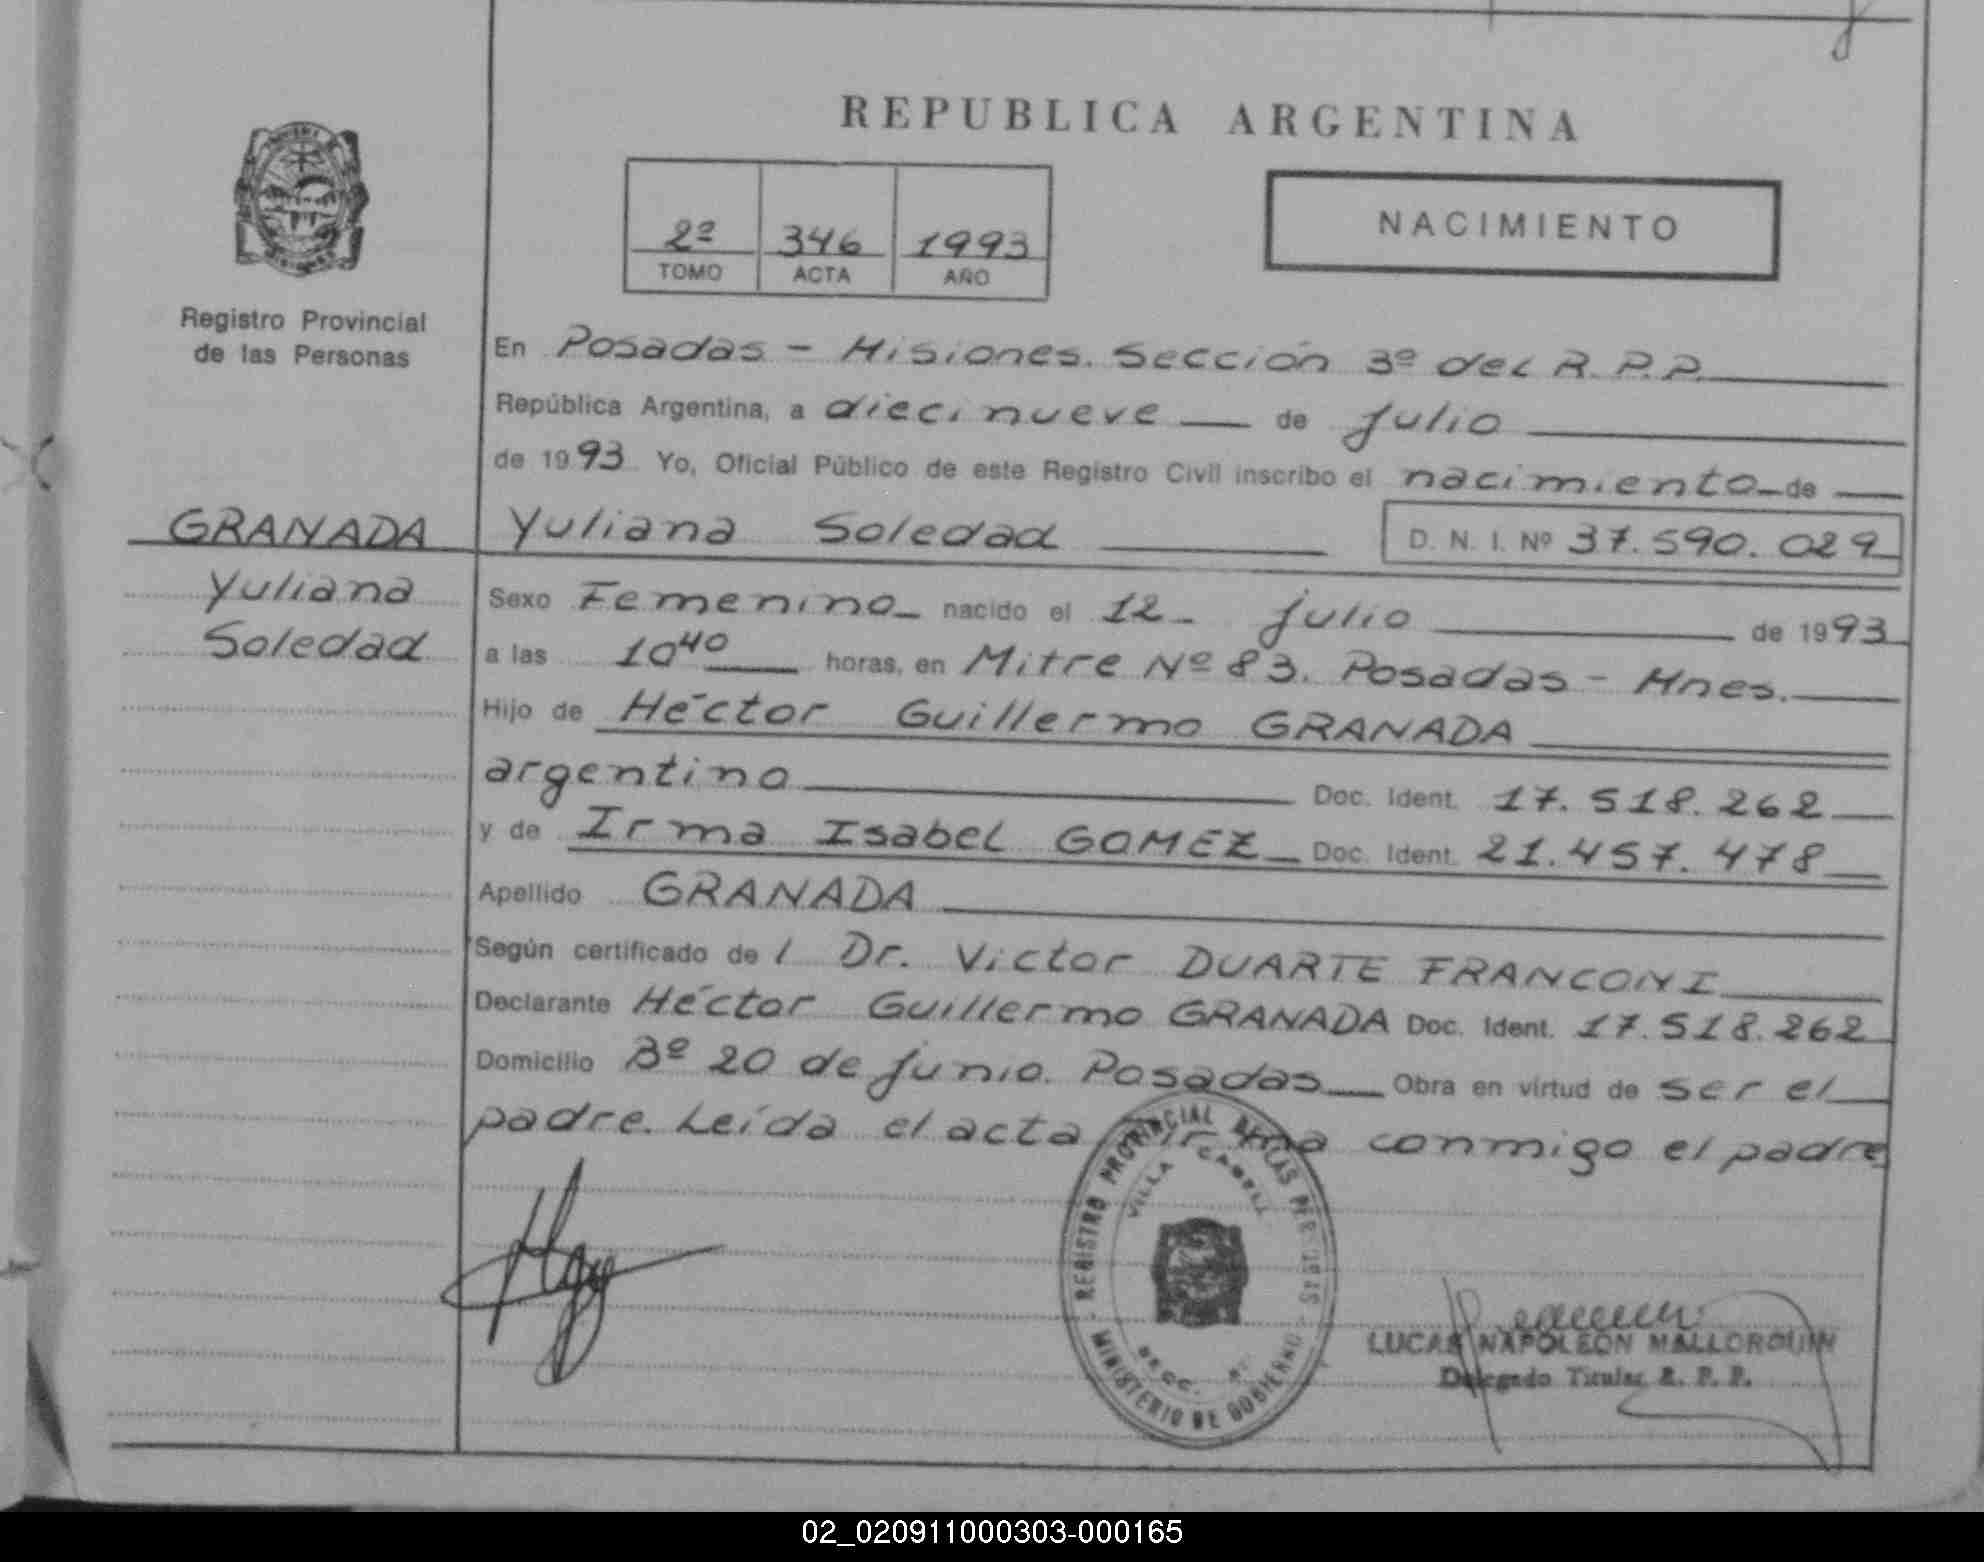 REPUBLICA ARGENTINA
NACIMIENTO
2º 346 1993
TOMO ACTA AÑO
Registro Provincial
de las Personas
En Posadas - Misiones. Sección 3º del R.P.P.
República Argentina, a diecinueve de julio
de 1993 Yo, Oficial Público de este Registro Civil inscribo el nacimiento de
GRANADA
Yuliana
Soledad
Yuliana Soledad D. N. I. Nº 37.590.029
Sexo Femenino nacido el 12 - julio de 1993
a las 10 40 horas, en Mitre Nº 83. Posadas - Mnes.
Hijo de Héctor Guillermo GRANADA
argentino Doc. Ident. 17.518.262
y de Irma Isabel GOMEZ Doc. Ident. 21.457.478
Apellido GRANADA
Según certificado de l Dr. Victor DUARTE FRANCONI
Declarante Héctor Guillermo GRANADA Doc. Ident. 17.518.262
Domicilio Bº 20 de junio. Posadas Obra en virtud de ser el
padre. Leída el acta firma conmigo el padre
REGISTRO PROVINCIAL DE LAS PERSONAS
VILLA CABELLO
SECC.
MINISTERIO DE GOBIERNO
LUCAS NAPOLEON MALLORQUIN
Delegado Titular R. P. P.
02_020911000303-000165